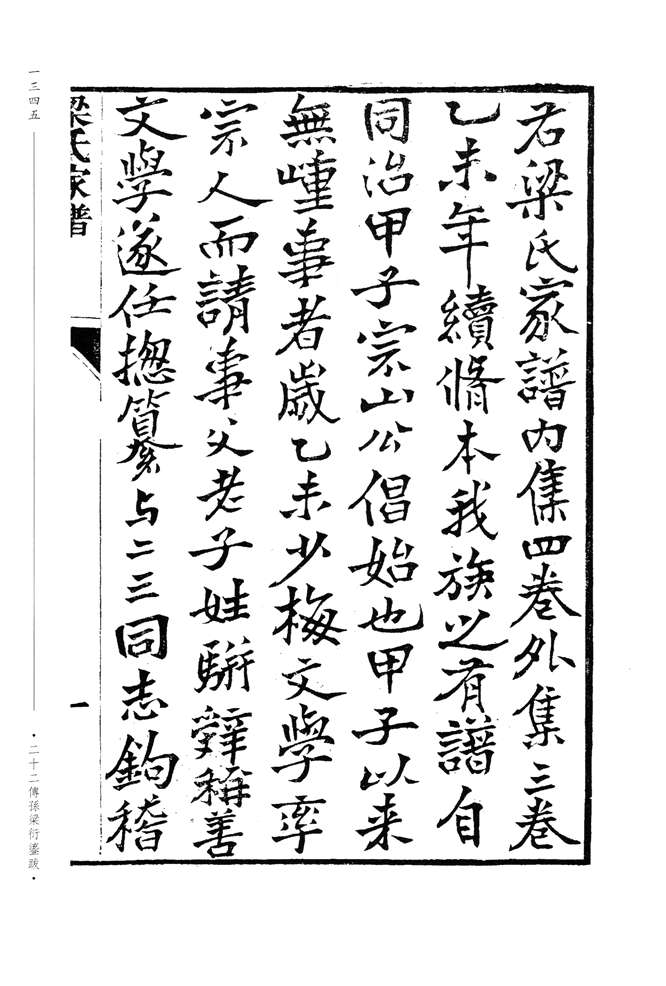 右梁氏家譜內集四卷外集三卷
乙未年續脩本我族之有譜自
同治甲子宗山公倡始也甲子以來
無嶂事者歲乙未少梅文學率
宗人而請事父老子姓駢辭稱善
文學遂任摠纂与二三同志鉤稽
梁氏家譜
一
一三四五
·二十二傳孫梁衍鎏跋·